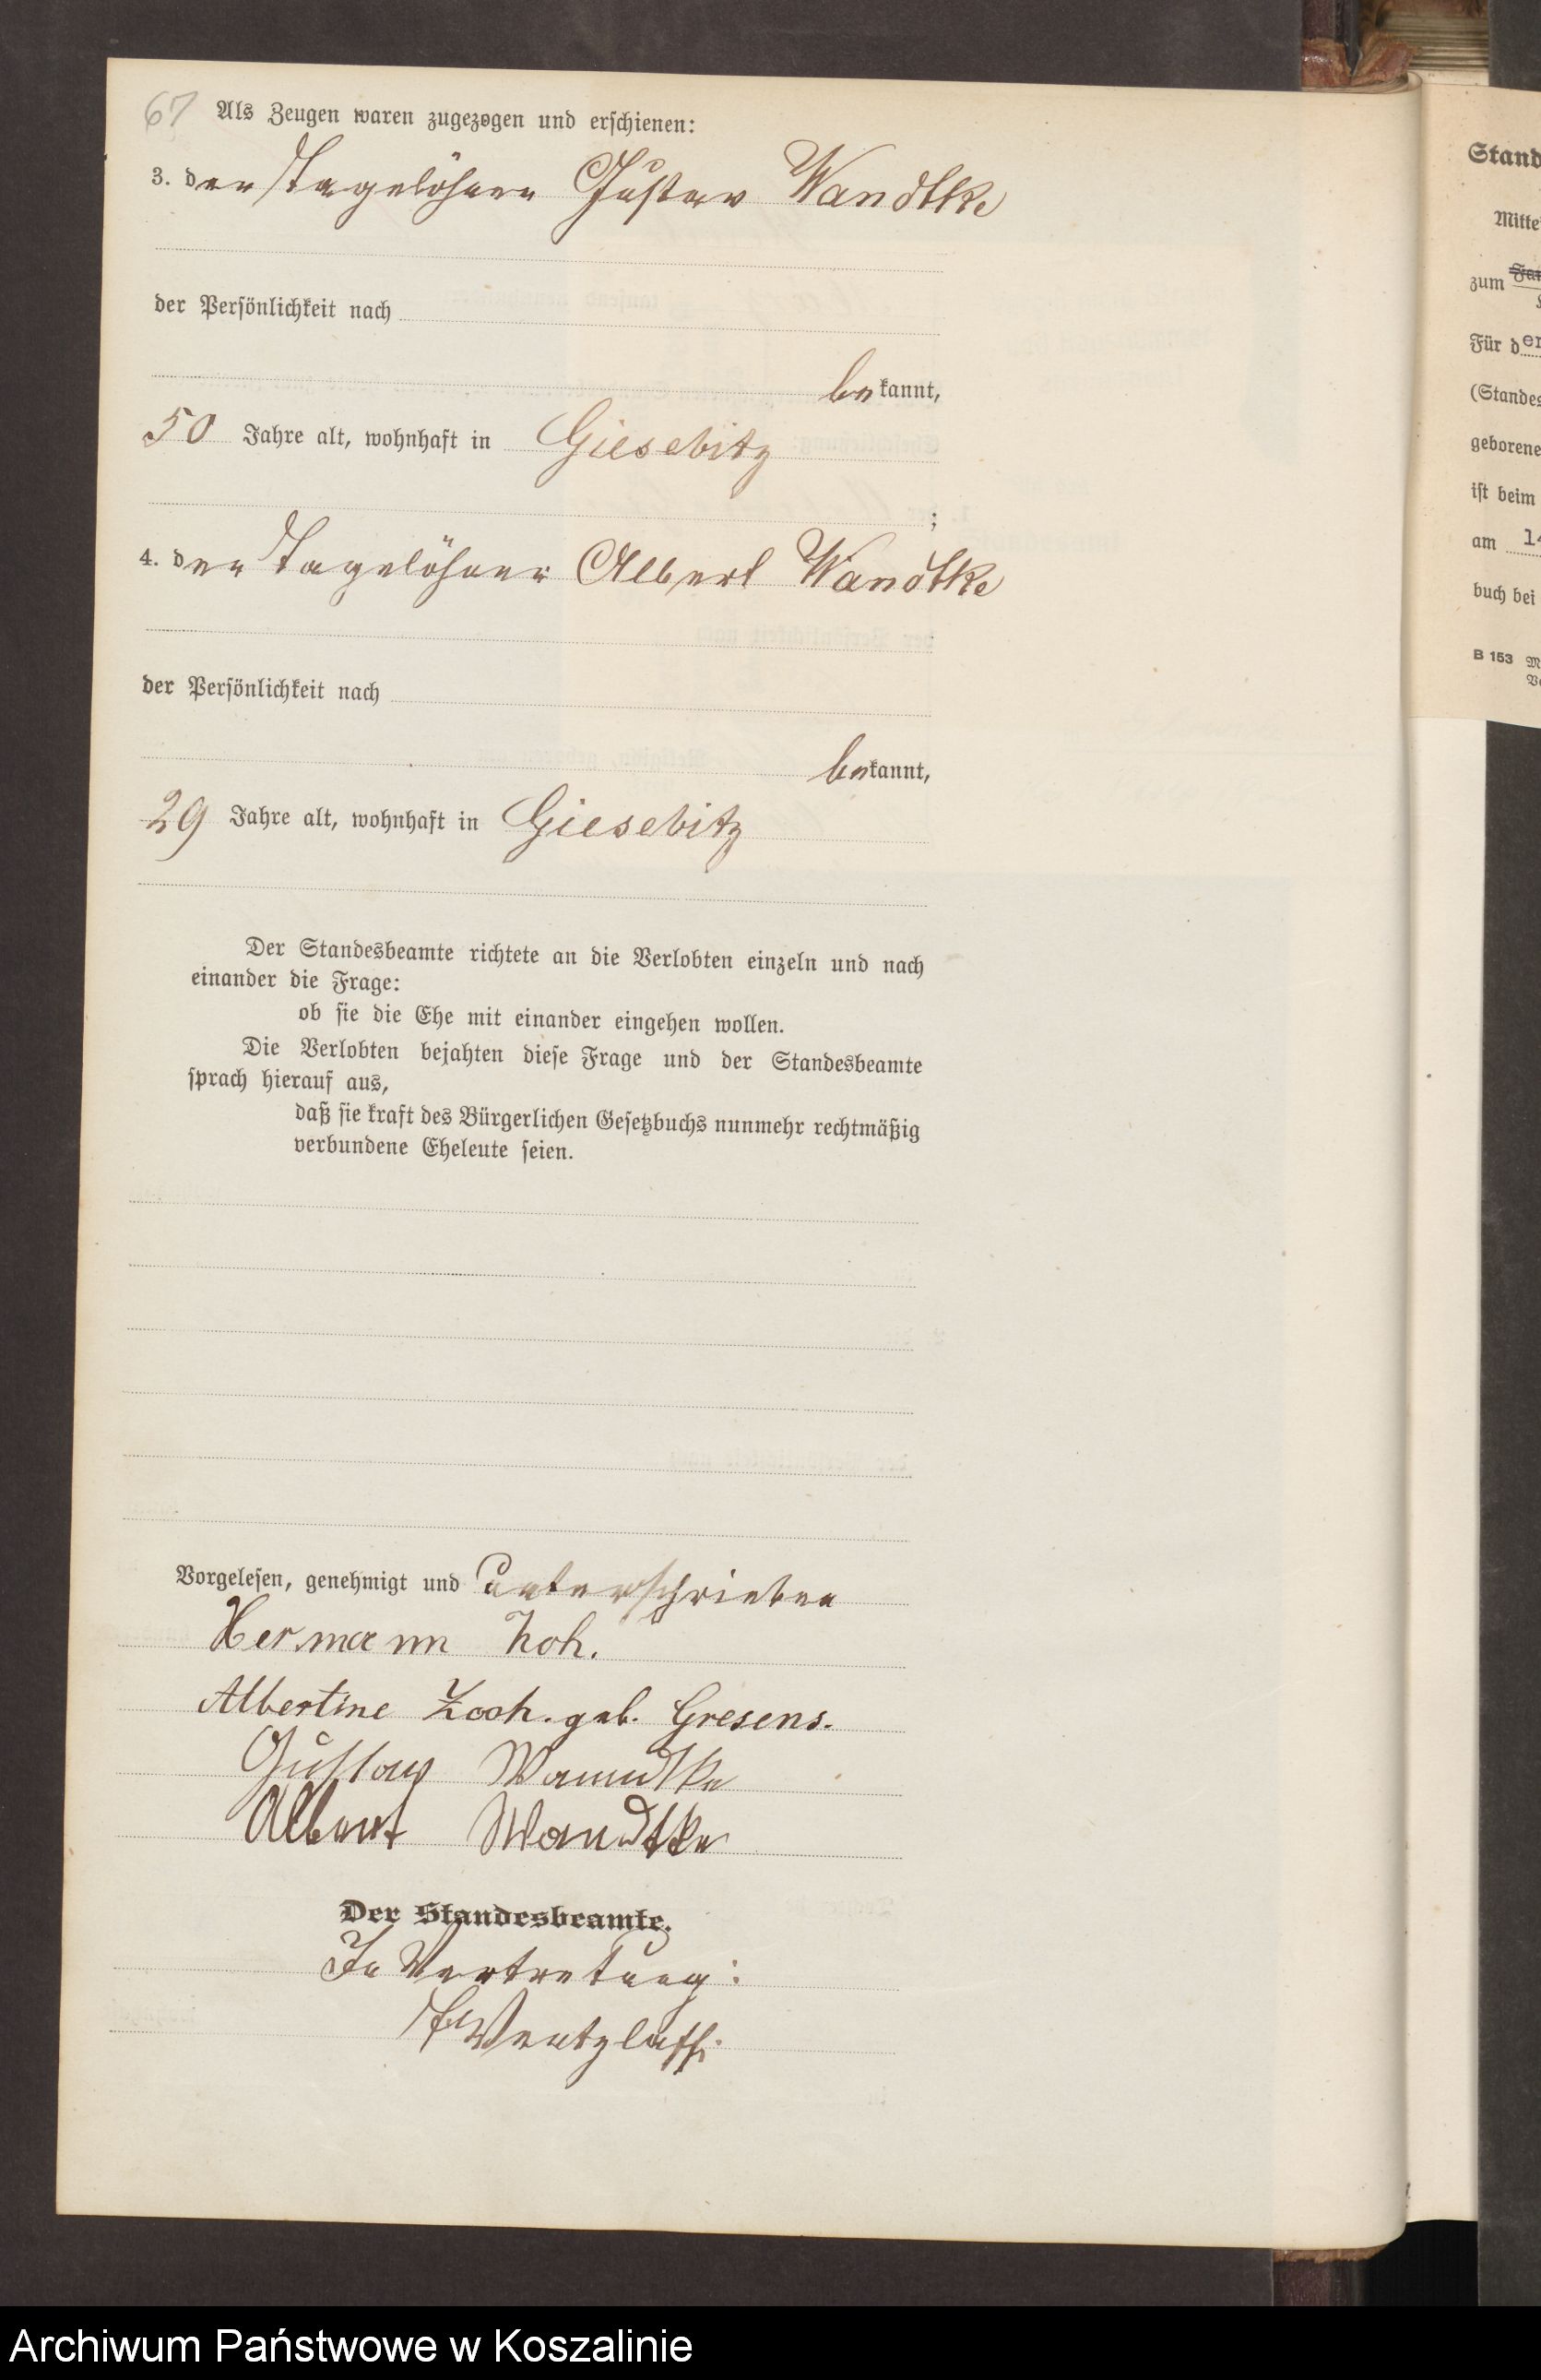 67 Als Zeugen waren zugezogen und erschienen:
3. der Tagelöhner Gustav Wandtke
der Persönlichkeit nach
bekannt,
50 Jahre alt, wohnhaft in Giesebitz
;
4. der Tagelöhner Albert Wandtke
der Persönlichkeit nach
bekannt,
29 Jahre alt, wohnhaft in Giesebitz
Der Standesbeamte richtete an die Verlobten einzeln und nach
einander die Frage:
ob sie die Ehe mit einander eingehen wollen.
Die Verlobten bejahten diese Frage und der Standesbeamte
sprach hierauf aus,
daß sie kraft des Bürgerlichen Gesetzbuchs nunmehr rechtmäßig
verbundene Eheleute seien.
Vorgelesen, genehmigt und unterschrieben
Hermann Zoh.
Albertine Zoch. geb. Gresens.
Gustav Wanndtke
Albert Wandtke
Der Standesbeamte.
In Vertretung:
Wentzlaff.
Stand
Mitte
zum
Für der
(Standes
geborene
ist beim
am 14
buch bei
B 153
Archiwum Państwowe w Koszalinie